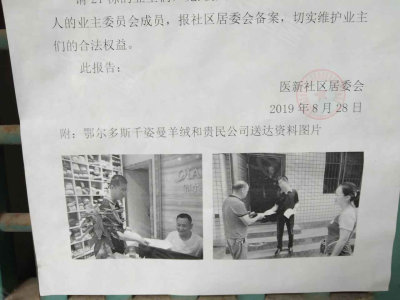 人的业主委员会成员，报社区居委会备案，切实维护业主
们的合法权益。
此报告；
医新社区居委会
2019年8月28日
附：鄂尔多斯千姿曼羊绒和贵民公司送达资料图片